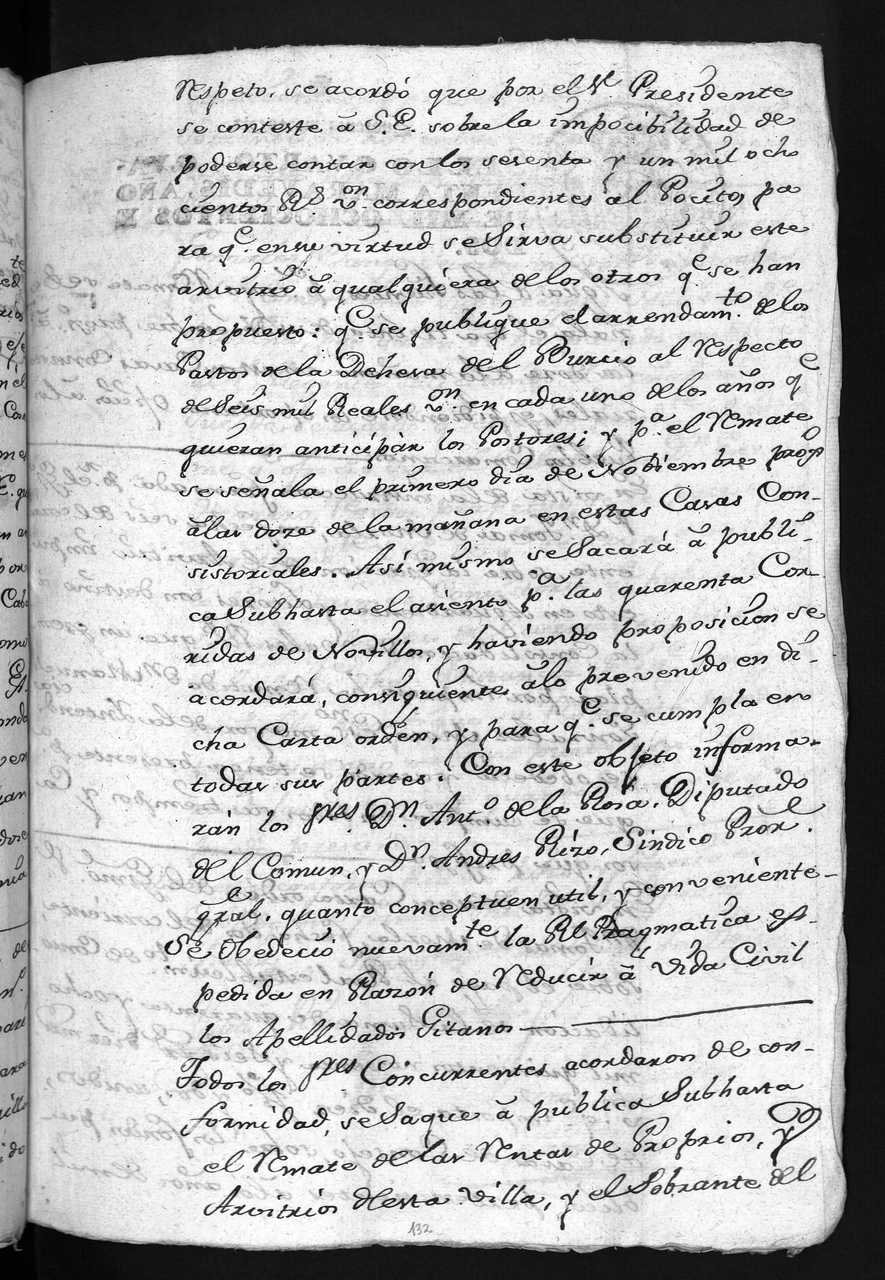 Respeto, se acordó que por el Sr Presidente
se conteste â S.E. sobre la impocibilidad de
poderse contar con los sesenta y un mil ocho
cientos Rs. von. correspondientes al Pocito, pa
ra qe. en su virtud se Sirva substituir este
arvitrio â qualquiera de los otros qe. se han
propuesto: qe. se publique el arrendamto. de los
Pastos de la Dehesa del Burcio al Respecto
de Seis mil Reales von. en cada uno de los años qe.
quieran anticipàr los Postores; y pa. el Remate
se señala el primero dia de Nobiembre proxo
âlas doze de la mañana en estas Casas Con-
sistoriales. Asi mismo se Sacará â publi-
ca Subhasta el asiento pa. las quarenta Cor-
ridas de Novillos, y haviendo proposicion se
acordará, consiguiente âlo prevenido en di-
cha Carta orden, y para qe. se cumpla en
todas sus partes. Con este objeto informa-
rán los Sres Dn. Anto. de la Rosa, Diputado
del Comun, y Dn. Andres Rizo, Sindico Pror.
gral. quanto conceptuen util, y conveniente-
Se Obedeció nuevamte. la Rl Pragmatica es-
pedida en Razón de Reducir â vida Civil
los Apellidados Gitanos
Todos los Sres Concurrentes acordaron de con-
formidad, se Saque â publica Subhasta
el Remate de las Rentas de Proprios, y
Arvitrios desta villa, y el Sobrante del
132